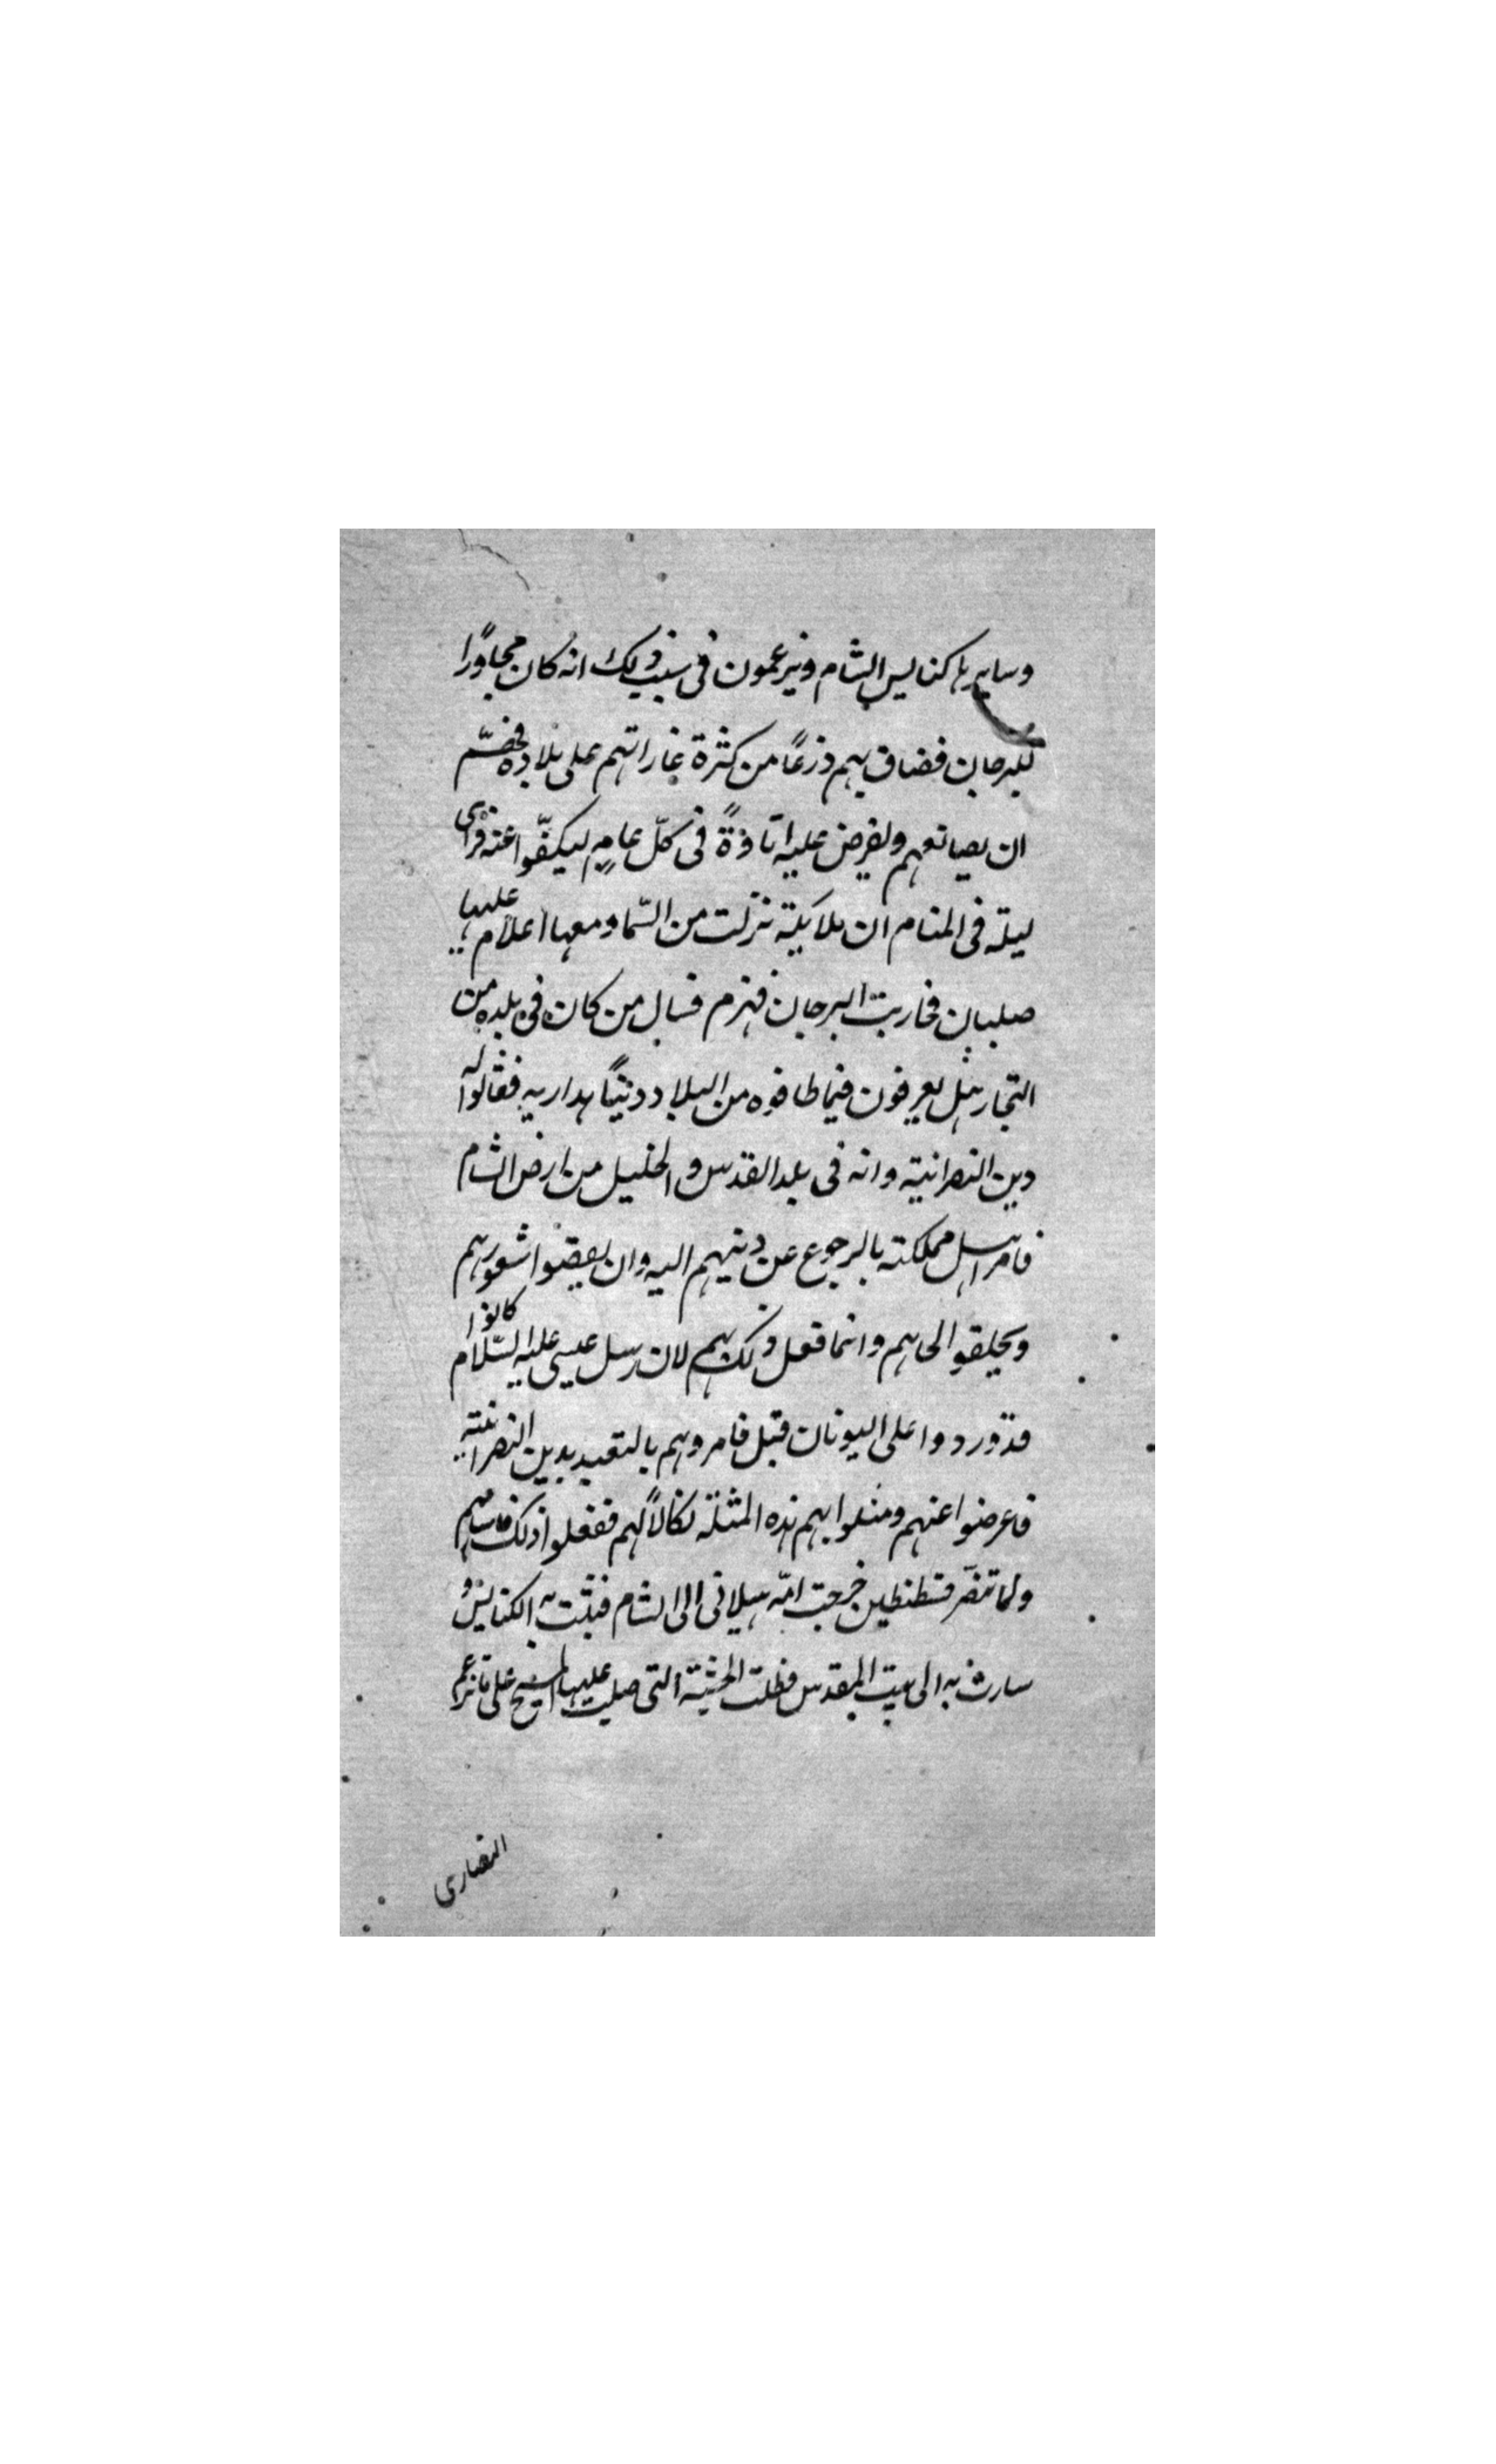 وساير ها كنايس الشام ويزعمون فى سبب ذلك انه كان مجاورًا
للبرجان فضاق بهم ذرعًا من كثرة غاراتهم على بلاده فهمّ
ان يصانعهم ويفرض عليه اتاوةً فى كلّ عامٍ ليكفّوا عنه فرأى
ليلة فى المنام ان ملايكة نزلت من السّما ومعها اعلام عليها
صلبان فحاربت البرجان فهزم فسال من كان فى بلده من
التجار هل يعرفون فيما طافوه من البلاد دينًا هذا زيه فقالوا له
دين النصرانية وانه فى بلد القدس والخليل من ارض الشام
فامر اهل مملكته بالرجوع عن دينهم اليه وان يقصوا شعورهم
ويحلقوا لحاهم وانما فعل ذلك بهم لان رسل عيسى عليه السّلام كانوا
قد وردوا على اليونان قبل فامروهم بالتعبد بدين النصرانية
فاعرضوا عنهم ومثلوا بهم هذه المثلة نكالاً لهم ففعلوا ذلك
ولما تنصّر قسطنطين خرجت امّه هيلانى الى الشام فبنت به الكنايس و
سارت به الى بيت المقدس فطلبت الخشبة التى صلب عليها المسيح على ما تزعم
النصارى